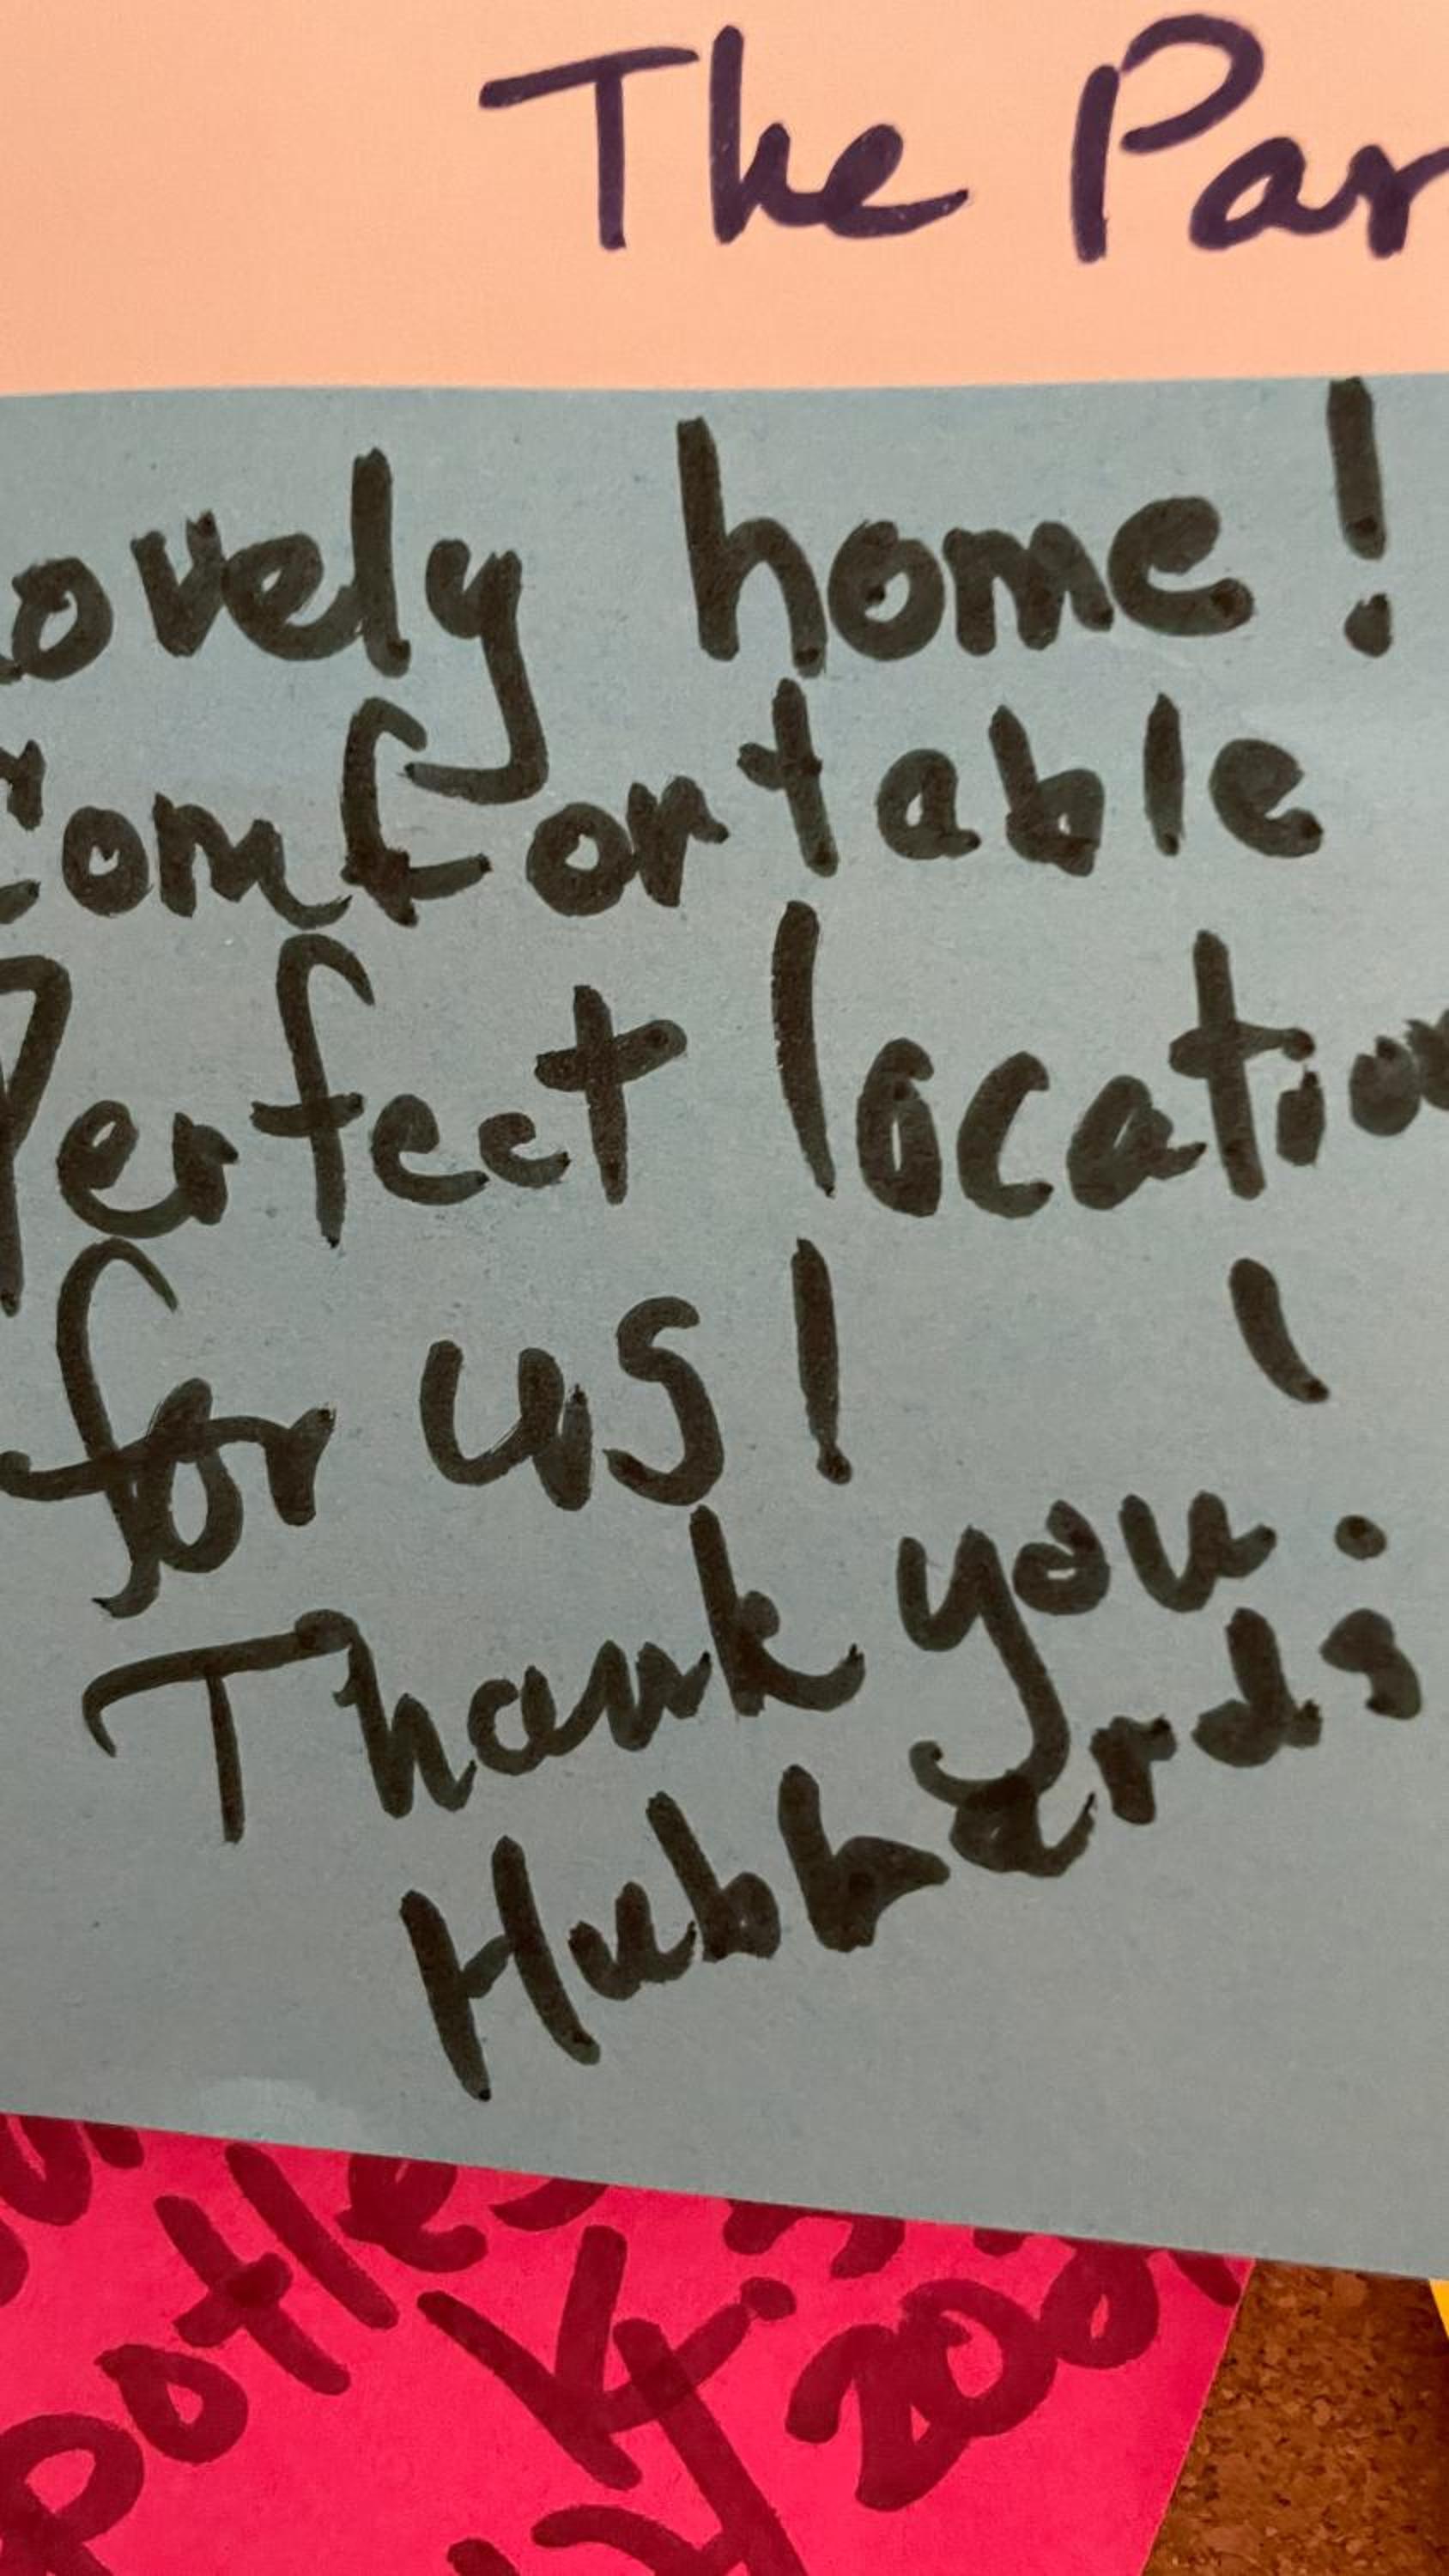 The Par
ovely home!
Comfortable
Perfect location
for us!
Thank you!
Hubbards